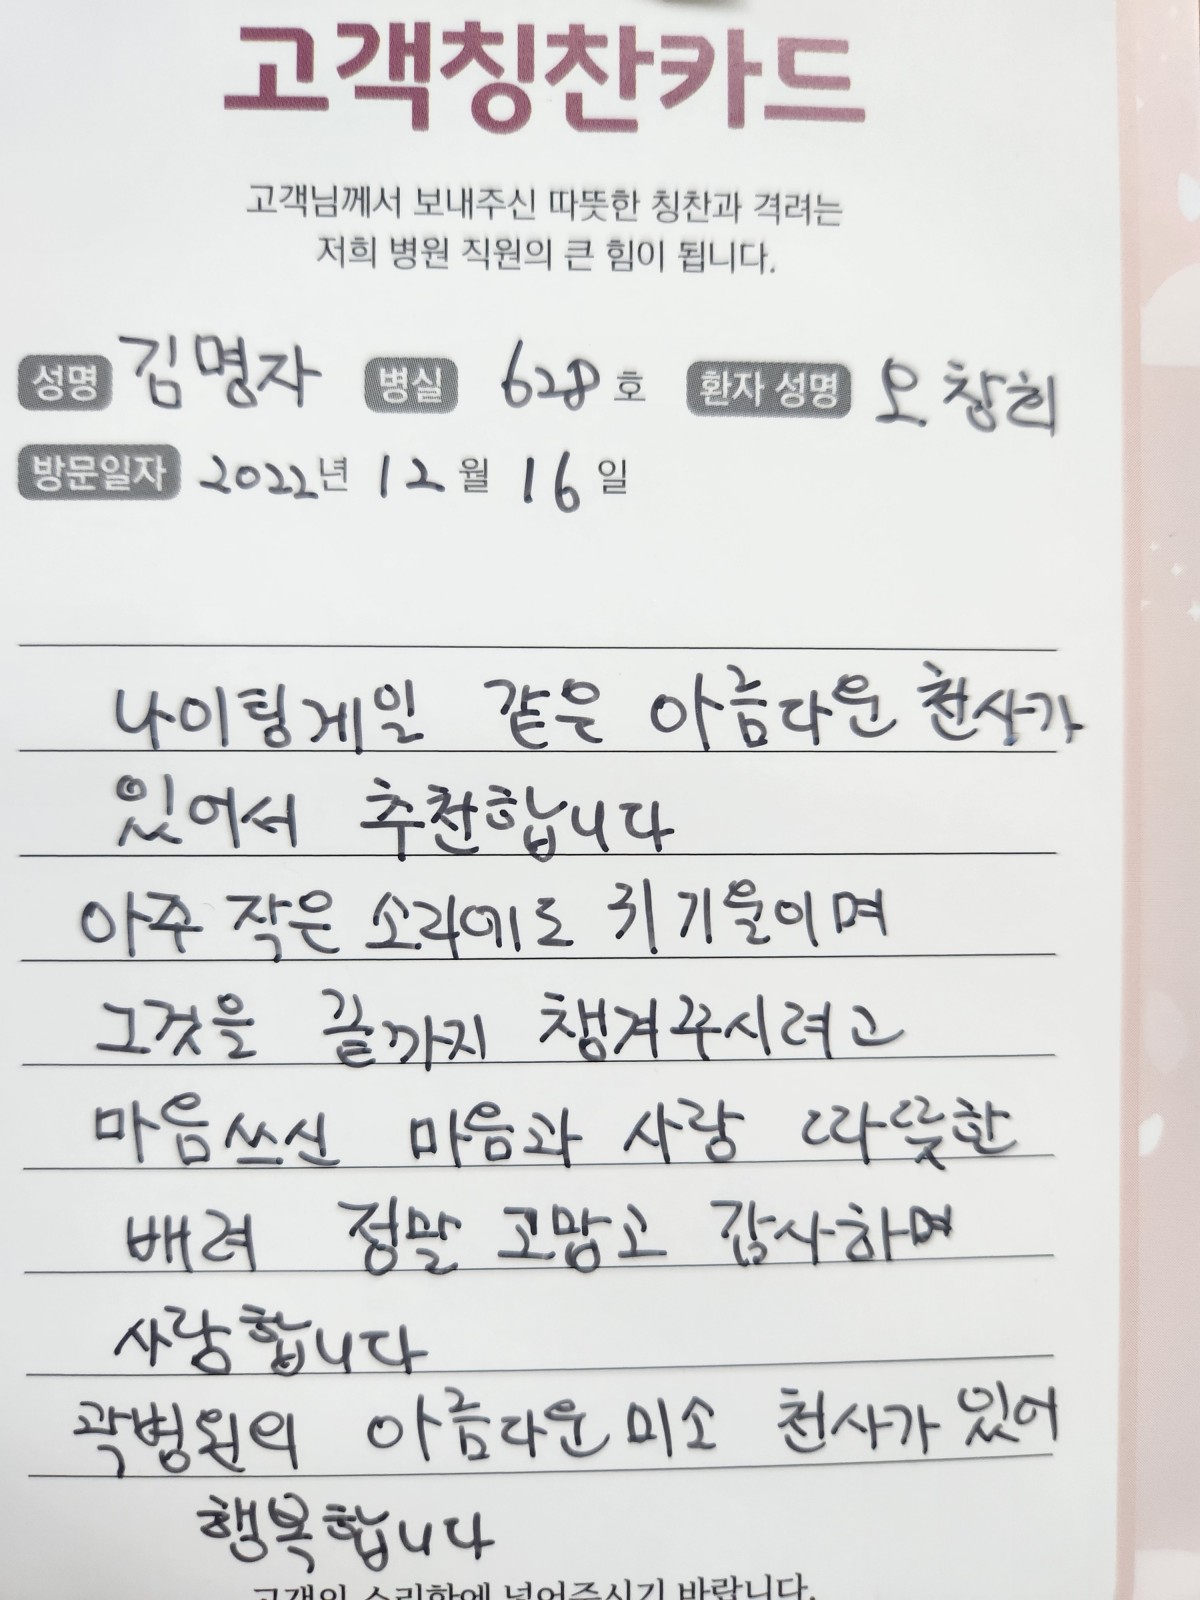 고객칭찬카드
고객님께서 보내주신 따뜻한 칭찬과 격려는
저희 병원 직원의 큰 힘이 됩니다.
성명 김명자 병실 628호 환자 성명 오창희
방문일자 2022년 12월 16일
나이팅게일 같은 아름다운 천사가
있어서 추천합니다
아주 작은 소리에도 귀 기울이며
그것을 끝까지 챙겨주시려고
마음쓰신 마음과 사랑 따뜻한
배려 정말 고맙고 감사하며
사랑합니다
곽병원의 아름다운 미소 천사가 있어
행복합니다
고객의 소리함에 넣어주시기 바랍니다.